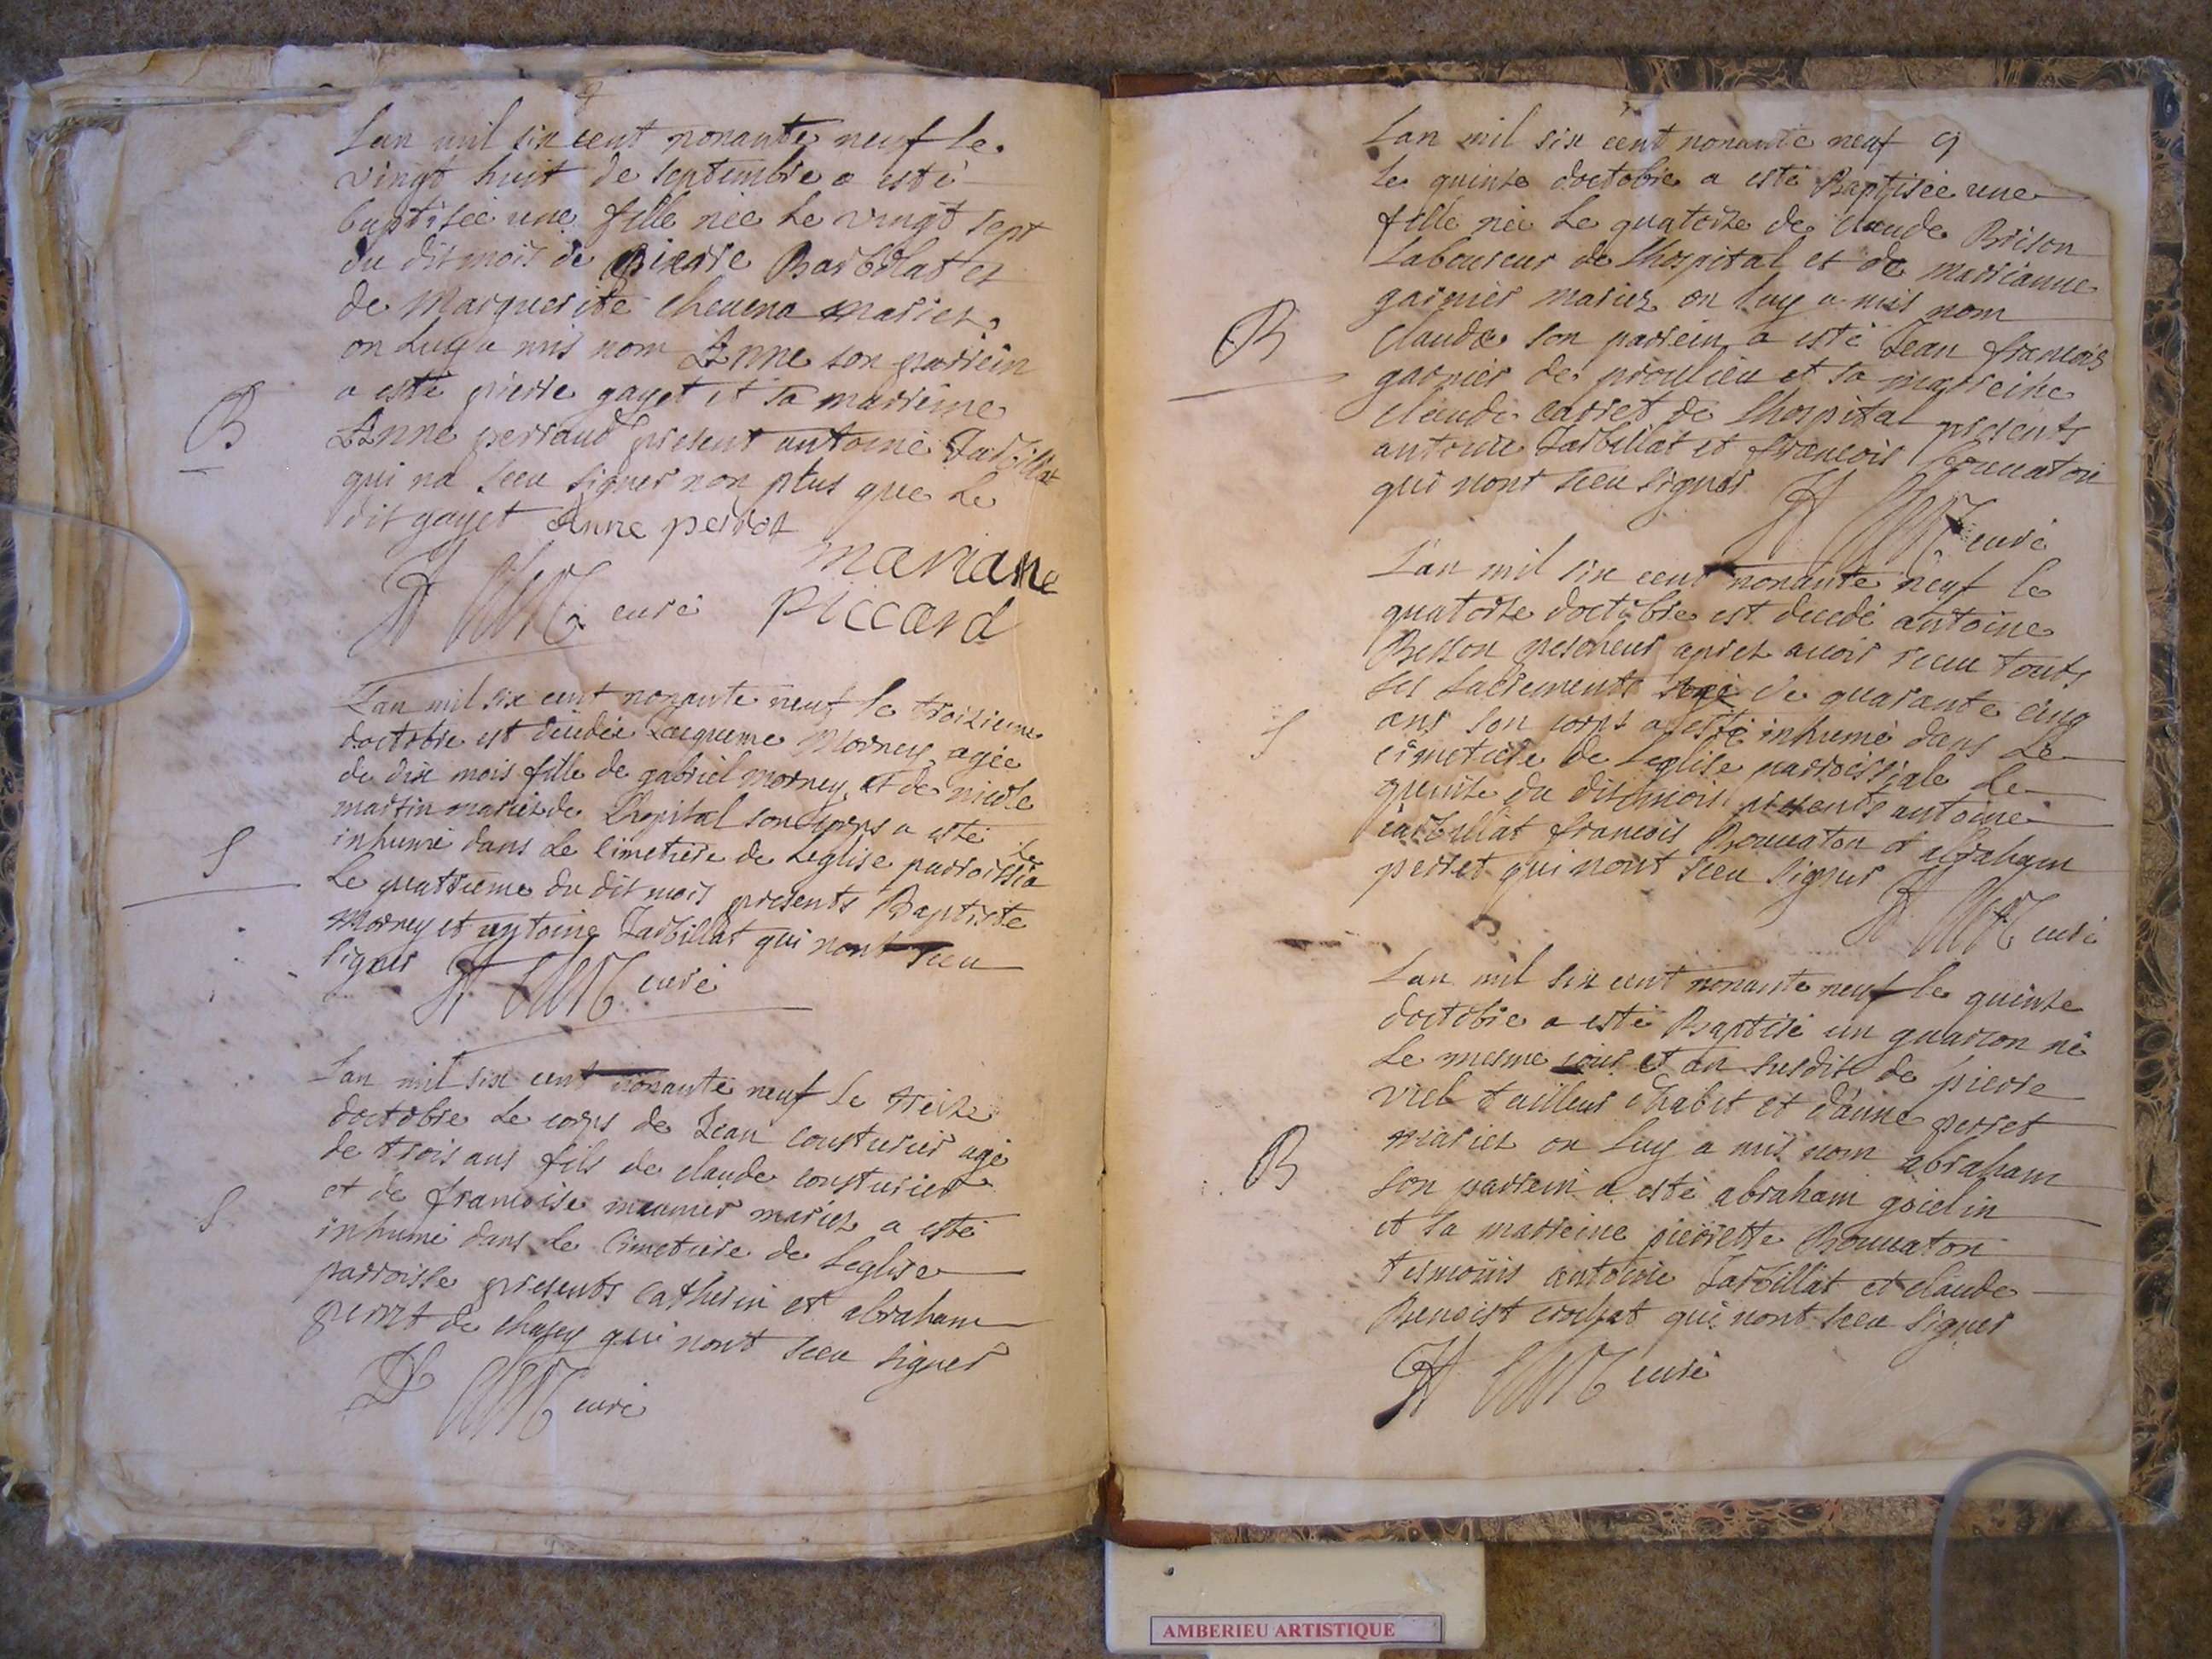 Lan mil six cent nonante neuf le
vingt huit de septembre a esté
baptisée une fille née le vingt sept
du dit mois de pierre Barbolat et
de Marguerite chevena mariez
on Luy a mis nom Anne son parrein
a esté pierre gayet et sa marreine
B
Anne perraud present antoine Jarbillat
qui na sceu signer non plus que le
dit gayet Anne perrot
mariane
piccard
curé
Lan mil six cent nonante neuf le troizieme
doctobre est decedée Jacqueme Morney agée
de dix mois fille de gabriel morney et de nicole
martin mariez de Lhopital son corps a esté
S
inhumé dans le cimetiere de Leglise parroissia le
Le quatrieme du dit mois presents Baptiste
Morney et antoine Jarbillat qui nont sceu
signer
curé
Lan mil six cent nonante neuf le treize
doctobre le corps de Jean cousturier agé
de trois ans fils de claude cousturier
S
et de francoise meunier mariez a esté
inhumé dans le cimetiere de Leglise
parroisse presents catherin et abraham
perret de chasey qui nont sceu signer
curé
Lan mil six cent nonante neuf 9
Le quinze doctobre a esté Baptisée une
fille née le quatorze de claude Brison
Laboureur de Lhospital et de marrianne
garnier mariez on luy a mis nom
B
claudæ son parrein a esté Jean francois
garnier de proulieu et sa marreine
claude carret de Lhospital presents
antoine Jarbillat et francois Bouuaton
qui nont sceu signer
curé
Lan mil six cent nonante neuf le
quatorze doctobre est decedé antoine
Besson pescheur aprez auoir receu touts
ses sacrements agé de quarante cinq
S
ans son corps a esté inhumé dans Le
cimetiere de Leglise parroissiale Le
quinze du dit mois presents antoine
jarbillat francois Bouuaton et abraham
perret qui nont sceu signer
curé
Lan mil six cent nonante neuf le quinze
doctobre a esté Baptisé un guarson né
Le mesme jour et an susdits de pierre
viel tailleur dhabit et danne perret
mariez on luy a mis nom abraham
B
son parrein a esté abraham goielin
et sa marreine pierrette Bouuaton
tesmoins antoine Jarbillat et claude
Benoist crohat qui nont sceu signer
curé
AMBERIEU ARTISTIQUE